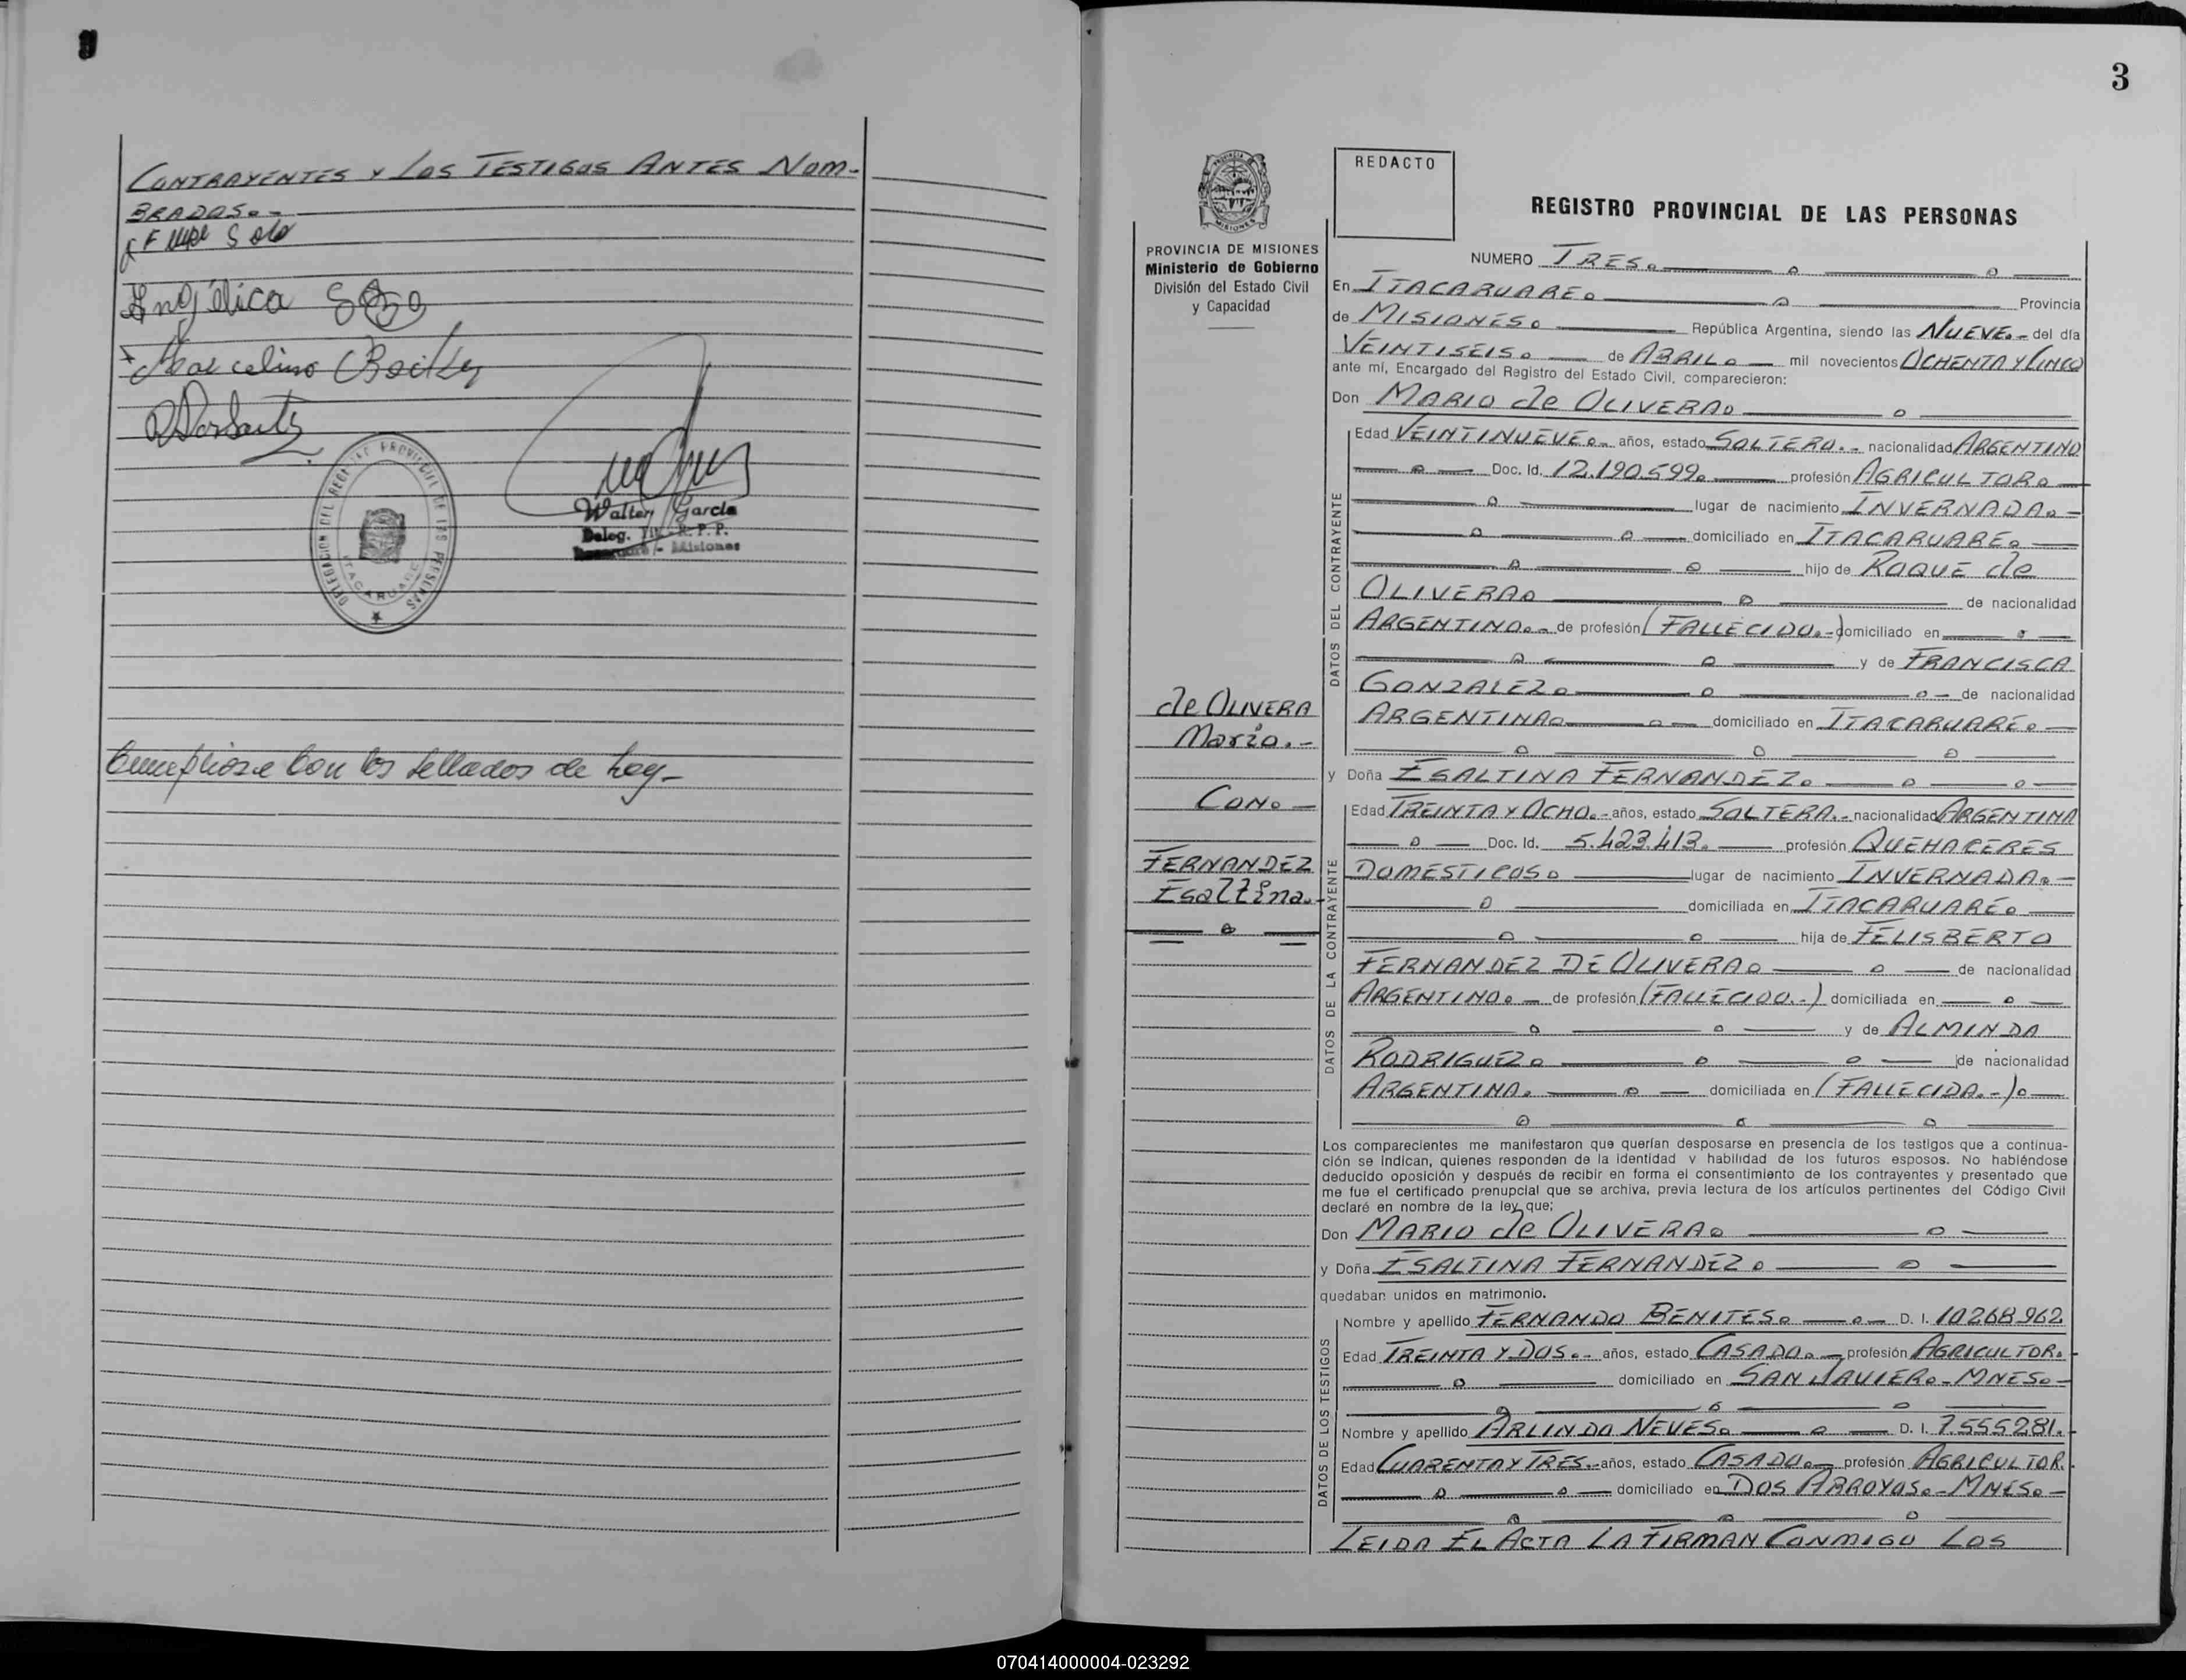 CONTRAYENTES Y LOS TESTIGOS ANTES NOM-
BRADOS.-
Angélica
Marcelino
DELEGACION DEL REGISTRO PROVINCIAL DE LAS PERSONAS
ITACARUARE
Walter García
Deleg. Tit. R. P. P.
Itacaruaré - Misiones
con los sellados de ley-
3
PROVINCIA DE MISIONES
Ministerio de Gobierno
División del Estado Civil
y Capacidad
de OLIVERA
Mario.-
CON.-
FERNANDEZ
Esaltina.-
REDACTO
REGISTRO PROVINCIAL DE LAS PERSONAS
NUMERO TRES.
En ITACARUARE. Provincia
de MISIONES. República Argentina, siendo las NUEVE.- del día
VEINTISEIS. de ABRIL. mil novecientos OCHENTA Y CINCO
ante mí, Encargado del Registro del Estado Civil, comparecieron:
Don MARIO de OLIVERA.
DATOS DEL CONTRAYENTE
Edad VEINTINUEVE.- años, estado SOLTERO.- nacionalidad ARGENTINO
Doc. Id. 12.190.599. profesión AGRICULTOR.
lugar de nacimiento INVERNADA.-
domiciliado en ITACARUARE.
hijo de ROQUE de
OLIVERA. de nacionalidad
ARGENTINO.- de profesión (FALLECIDO.-) domiciliado en
y de FRANCISCA
GONZALEZ. de nacionalidad
ARGENTINA. domiciliado en ITACARUARE.
y Doña ESALTINA FERNANDEZ.
DATOS DE LA CONTRAYENTE
Edad TREINTA Y OCHO.- años, estado SOLTERA.- nacionalidad ARGENTINA
Doc. Id. 5.423.413. profesión QUEHACERES
DOMESTICOS. lugar de nacimiento INVERNADA.-
domiciliada en ITACARUARE.
hija de FELISBERTO
FERNANDEZ DE OLIVERA. de nacionalidad
ARGENTINO.- de profesión (FALLECIDO.-) domiciliada en
y de ALMINDA
RODRIGUEZ. de nacionalidad
ARGENTINA. domiciliada en (FALLECIDA.-).
Los comparecientes me manifestaron que querían desposarse en presencia de los testigos que a continua-
ción se indican, quienes responden de la identidad y habilidad de los futuros esposos. No habiéndose
deducido oposición y después de recibir en forma el consentimiento de los contrayentes y presentado que
me fue el certificado prenupcial que se archiva, previa lectura de los artículos pertinentes del Código Civil
declaré en nombre de la ley que:
Don MARIO de OLIVERA.
y Doña ESALTINA FERNANDEZ.
quedaban unidos en matrimonio.
DATOS DE LOS TESTIGOS
Nombre y apellido FERNANDO BENITES. D. I. 10268962
Edad TREINTA Y DOS.- años, estado CASADO.- profesión AGRICULTOR.
domiciliado en SAN JAVIER.-MNES.-
Nombre y apellido ARLINDO NEVES. D. I. 7.555281.
Edad CUARENTA Y TRES.- años, estado CASADO.- profesión AGRICULTOR.
domiciliado en DOS ARROYOS.-MNES.-
LEIDA EL ACTA LA FIRMAN CONMIGO LOS
070414000004-023292